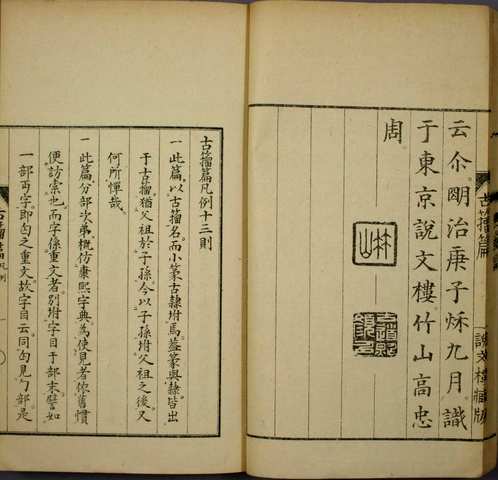 古籀篇
說文樓藏版
云尒朙治庚子秌九月識
于東京說文樓竹山高忠
周
古籀篇凡例十三則
一此篇以古籀名而小篆古隷坿焉葢篆與隷皆出
于古籀猶父祖於子孫今以子孫坿父祖之後又
何所憚哉
一此篇分部次弟概仿康熙字典為使見者依舊慣
便訪索也而字係重文者別坿字目于部末譬如
一部丏字即匃之重文故字目云同匃見勹部是
古籀篇凡例